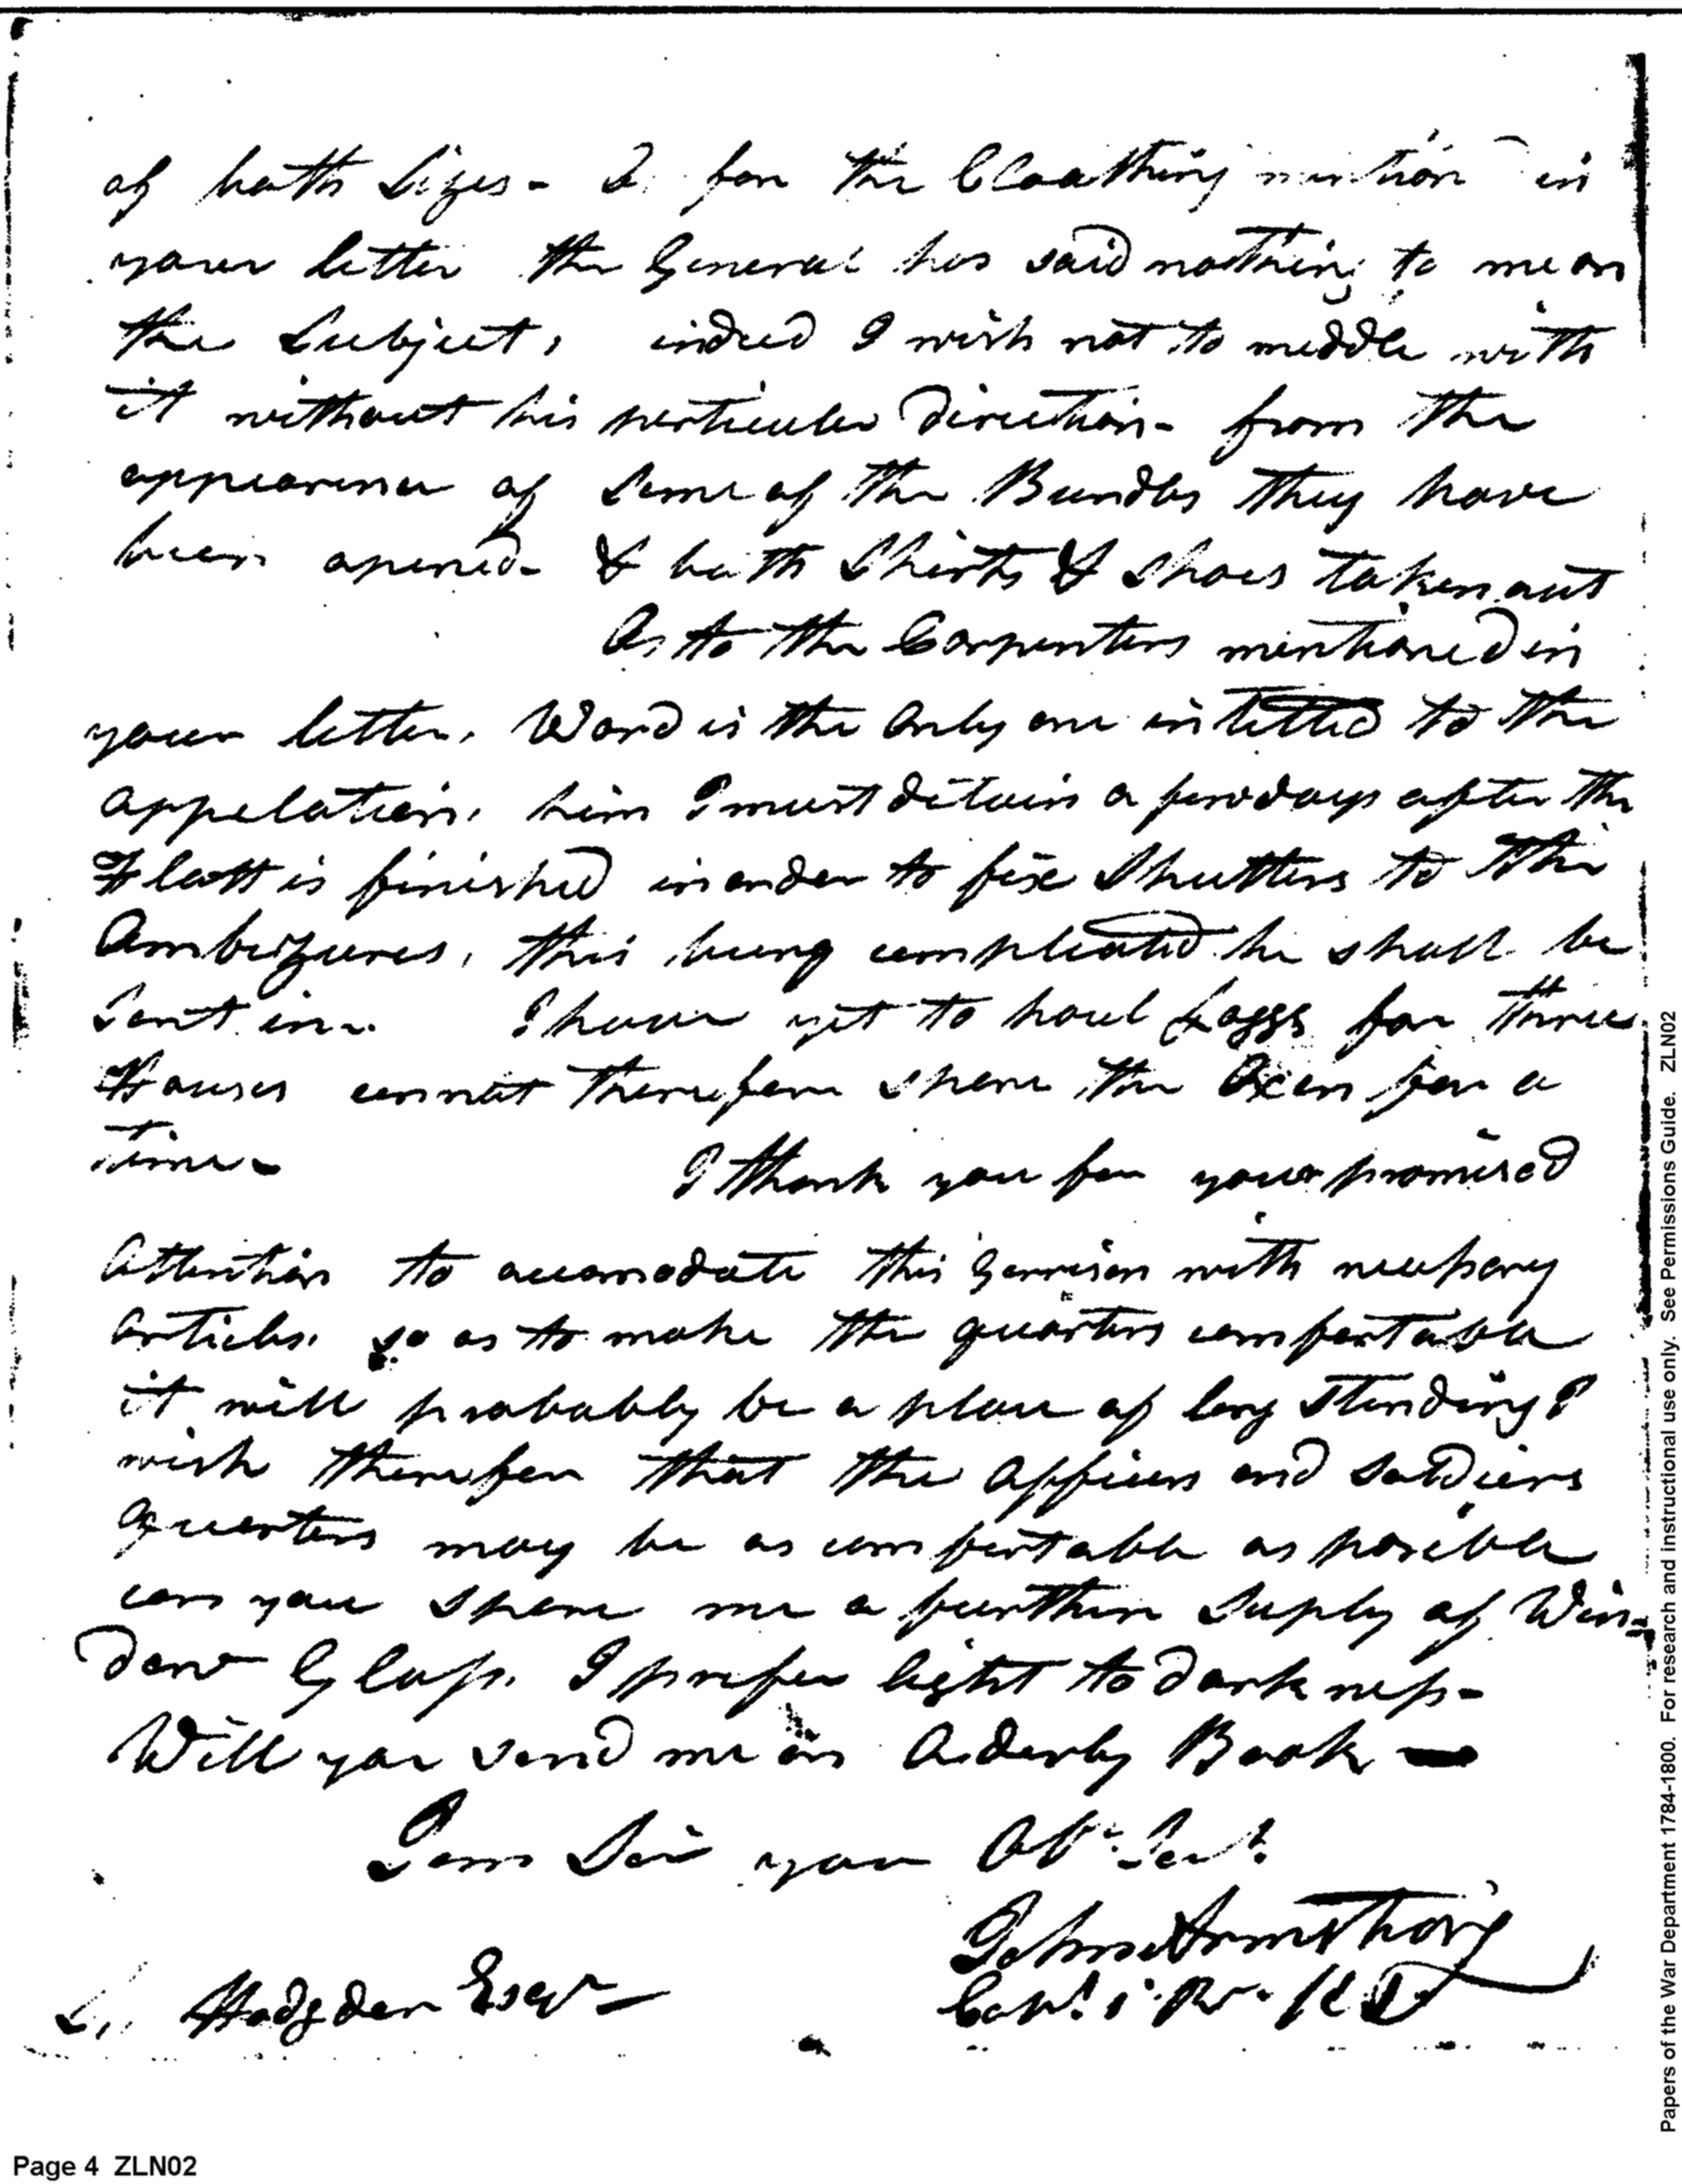 of both Sizes - for the Cloathing mention in
your letter the General has said nothing to me on
the Subject, indeed I wish not to meddle with
it without his perticular Direction - from the
appearence of Some of the Bundles they have
been opened - & both Shirts & Shoes taken out
As to the Carpenters mentioned in
your letter, Ward is the only one intitled to the
appelation, him I must detain a few days after the
Flatt is finished in order to fix Shutters to the
Ambuzures, this being compleated he shall be
Sent in - I have yet to haul Loggs for three
Houses cannot therefore spare the Oxen for a
time -
I thank you for your promised
Attention to accomodate this Garrison with necessary
articles. so as to make the quarters comfortable
it will probably be a place of long Standing I
wish therefore that the Officers and Soldiers
Quarters may be as comfortable as posible
can you spare me a further Suply of Win=
dow Glass. I prefer light to darkness -
Will you send me an Orderly Book -
I am Sir your Obt. Servt.
John Armstrong
Capt. 1 R
Hodgden Esqr
Papers of the War Department 1784-1800. For research and instructional use only. See Permissions Guide. ZLN02
Page 4 ZLN02